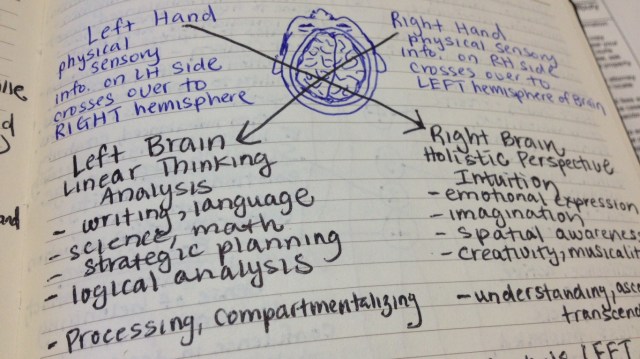 Left Hand
physical
sensory
info. on LH side
crosses over to
RIGHT hemisphere
Right Hand
physical sensory
info. on RH side
crosses over to
LEFT hemisphere of Brain
Left Brain
Linear Thinking
Analysis
- writing, language
- science, math
- strategic planning
- logical analysis
- Processing, compartmentalizing
Right Brain
Holistic Perspective
Intuition
- emotional expression
- imagination
- spatial awareness
- creativity, musicalit
- understanding, asc
transcend
LEFT